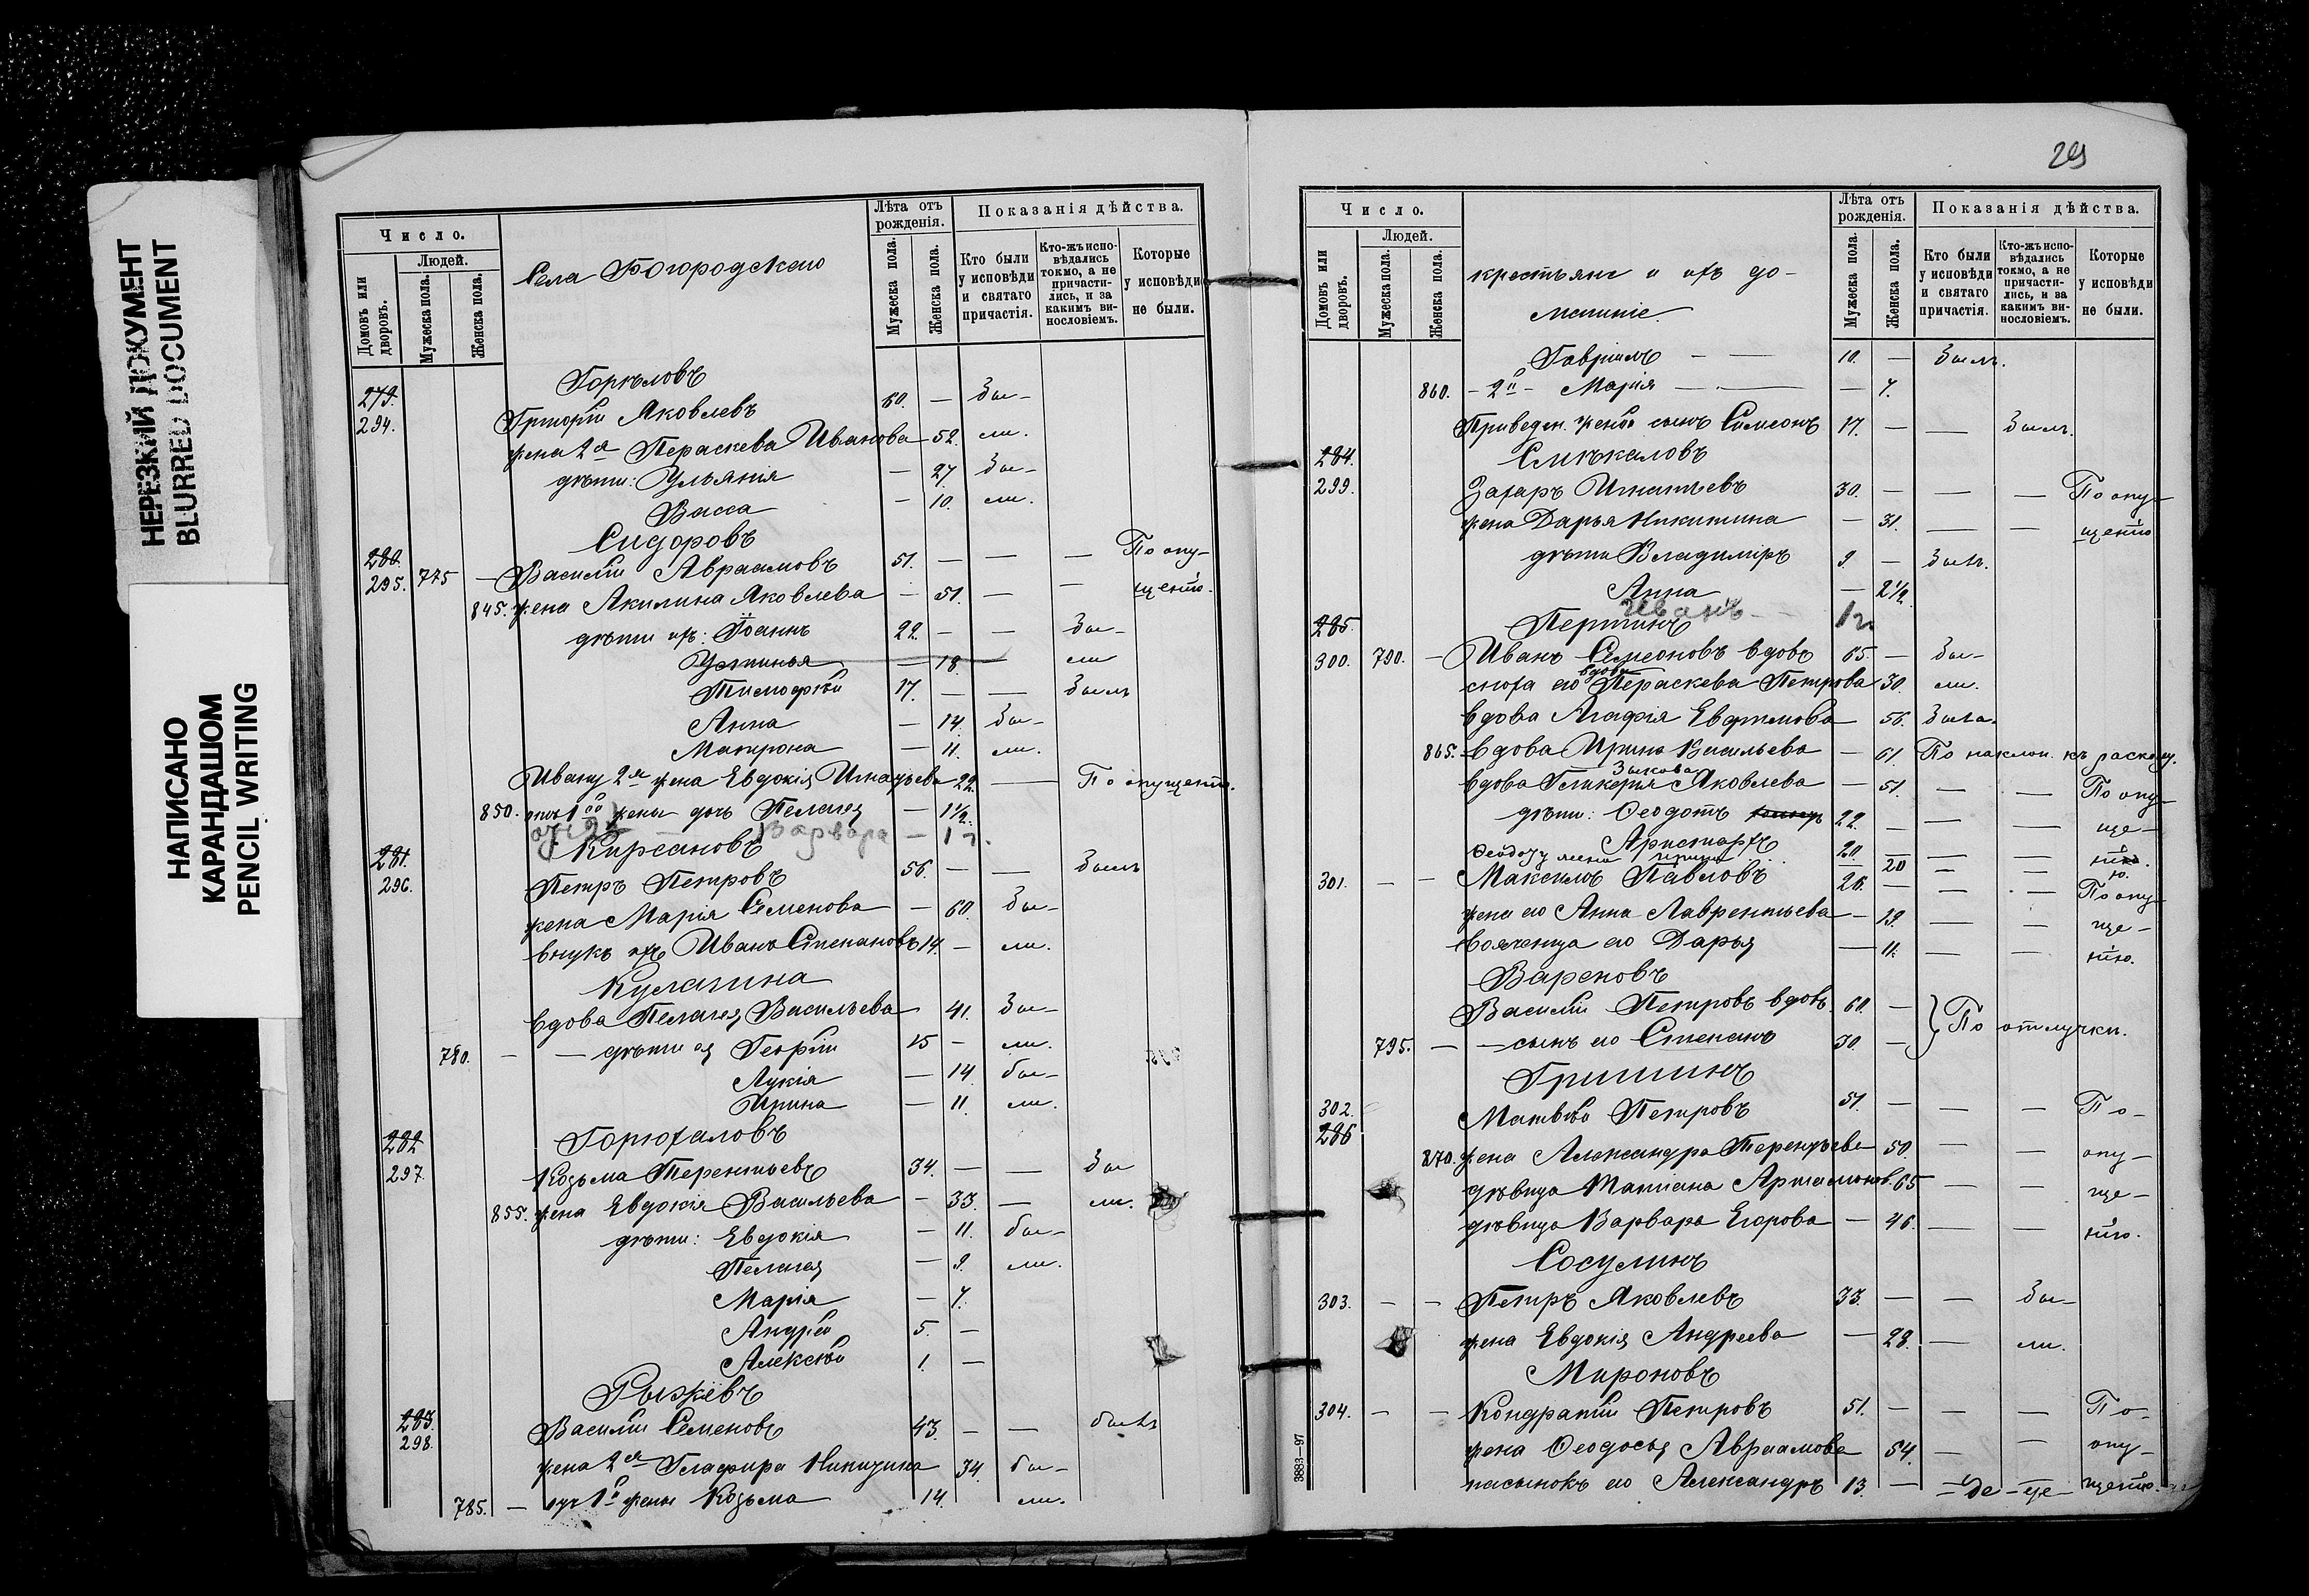 НЕРЕЗКИЙ ДОКУМЕНТ
BLURRED DOCUMENT
НАПИСАНО
КАРАНДАШОМ
PENCIL WRITING
Число.
Людей.
Домовъ или дворовъ.
Мужеска пола.
Женска пола.
Села Богородскаго
Лѣта отъ рожденія.
Мужеска пола.
Женска пола.
Показанія дѣйства.
Кто были у исповѣди и святаго причастія.
Кто-жъ исповѣдались токмо, а не причастились, и за какимъ винословіемъ.
Которые у исповѣди не были.
Горѣловъ
279.
294. Григорій Яковлевъ 60. — бы-
жена 2я Пераскева Иванова — 52. ли.
дѣти: Ульянія — 27. бы-
Васса — 10. ли.
Сидоровъ
280.
295. 775 — Василій Авраамовъ 51. — — — По опу-
845. жена Акилина Яковлева — 51. — — щенію.
дѣти ихъ: Іоаннъ 22. — — бы-
Устинья — 18. — ли
Тимофѣй 17. — — былъ
Анна — 14. бы-
Матрона — 11. ли.
Ивану 2я жена Евдокія Игнатьева 22. — По опущенію.
850. отъ 1ой жены дочь Пелагея — 1½.
Варвара — 1
Кирсановъ
281.
296. Петръ Петровъ 56. — — былъ
жена Марія Семенова — 60. бы-
внукъ ихъ Иванъ Степановъ 14. — ли.
Кулагина
вдова Пелагея Васильева — 41. бы-
780. — — дѣти ея Георгій 15 — ли.
Лукія — 14 бы-
Ирина — 11. ли.
Горюхаловъ
282
297. Козьма Терентьевъ 34. — — бы
855. жена Евдокія Васильева — 33. — ли.
дѣти: Евдокія — 11. бы-
Пелагея — 9. ли.
Марія — 7.
Андрей 5. —
Алексѣй 1. —
Рыжевъ
283.
298. Василій Семеновъ 43. — — былъ
жена 2я Глафира Никитина 34. бы-
785. — отъ 1й жены Козьма 14. ли.
29
Число.
Людей.
Домовъ или дворовъ.
Мужеска пола.
Женска пола.
крестьяне и ихъ до-
машніе.
Лѣта отъ рожденія.
Мужеска пола.
Женска пола.
Показанія дѣйства.
Кто были у исповѣди и святаго причастія.
Кто-жъ исповѣдались токмо, а не причастились, и за какимъ винословіемъ.
Которые у исповѣди не были.
Гавріилъ — — 10. — былъ.
860. — 2й — Марія — — — 7.
Приведен. женой сынъ Симеонъ 17. — — былъ.
284. Смѣкаловъ
299. Захаръ Игнатьевъ 30. — — — По опу-
жена Дарья Никитина — 31. — — щенію
дѣти Владиміръ 9. — былъ.
Анна — 2½
Иванъ — 1 г.
285. Першинъ
300. 790. — Иванъ Семеоновъ вдовъ 65. — бы-
вдова
сноха его Пераскева Петрова 30. ли.
вдова Агафія Евфимова 56. была.
865. вдова Ирина Васильева — 61. По наклон. къ расколу.
Зыкова
вдова Гликерія Яковлева — 51. — — По опу-
дѣти: Феодотъ 22. — — — ще-
Аристархъ 20 — — — нію.
Феодоту жена Ирина 20 — — ю.
301. — — Максимъ Павловъ 26. — — — По опу-
жена его Анна Лаврентьева — 29. — — ще-
своячница его Дарья — 11. — — нію.
Вареновъ
Василій Петровъ вдовъ. 60. — } По отлучкѣ.
795. — — сынъ его Степанъ 30. —
Гришинъ
302. Матвѣй Петровъ 51. — — — По-
286
870. жена Александра Терентьева 50. — — опу-
дѣвица Татіана Артамонов. 65 — — ще-
дѣвица Варвара Егорова — 46. — — нію.
Сосулинъ
303. — — Петръ Яковлевъ 33. — — бы-
жена Евдокія Андреева — 28. — ли.
Мироновъ
304. — — Кондратій Петровъ 51. — — — По-
жена Феодосья Авраамова 54. — — опу-
пасынокъ его Александръ 13. — щенію.
3883—97